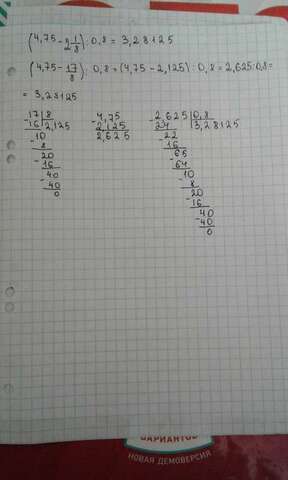 (4,75 - 2 1/8) : 0,8 = 3,28125
(4,75 - 17/8) : 0,8 = (4,75 - 2,125) : 0,8 = 2,625 : 0,8 =
= 3,28125
-17|8
16|2,125
-10
8
-20
16
-40
40
0
-4,75
2,125
2,625
-2,625|0,8
24|3,28125
-22
16
-65
64
-10
8
-20
16
-40
40
0
ВАРИАНТОВ
НОВАЯ ДЕМОВЕРСИЯ